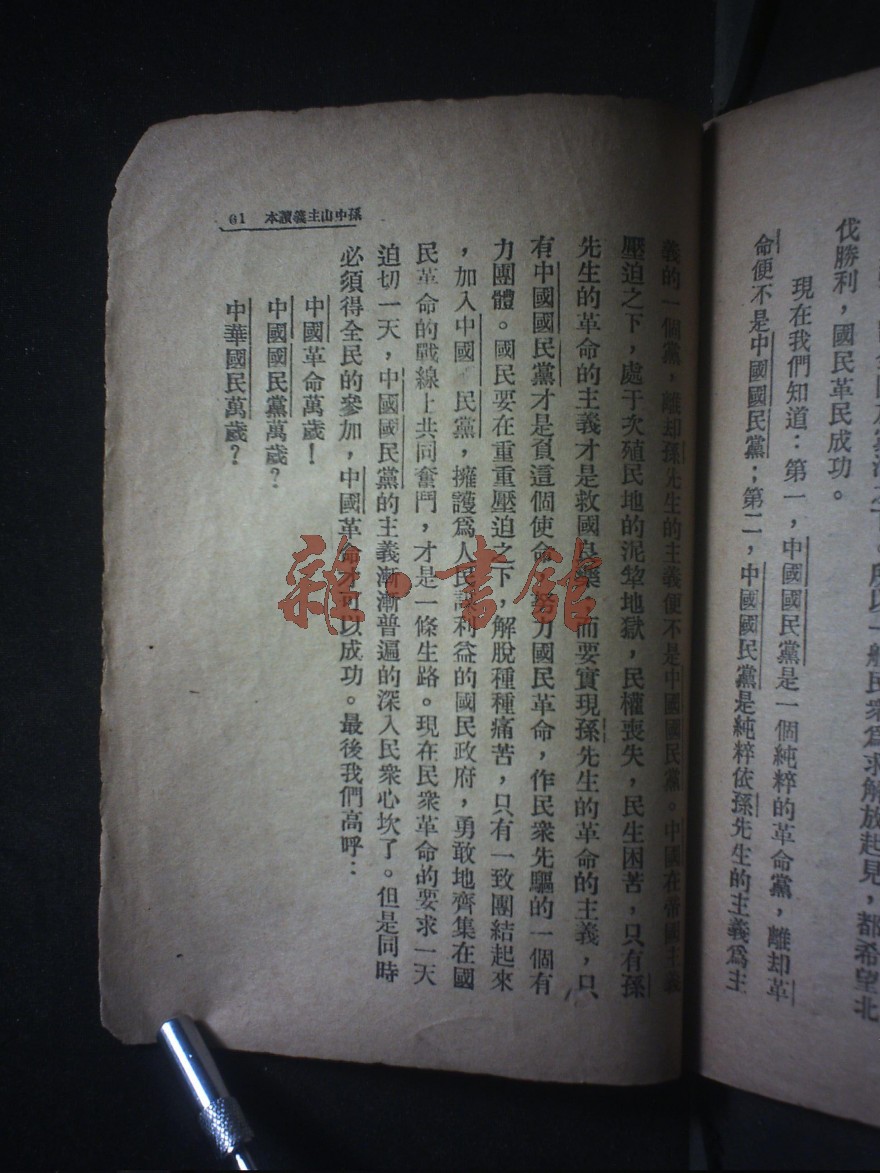 伐勝利，國民革民成功。
現在我們知道：第一，中國國民黨是一個純粹的革命黨，離却革
命便不是中國國民黨；第二，中國國民黨是純粹依孫先生的主義爲主
義的一個黨，離却孫先生的主義便不是中國國民黨。中國在帝國主義
壓迫之下，處于次殖民地的泥犂地獄，民權喪失，民生困苦，只有孫
先生的革命的主義才是救國良藥，而要實現孫先生的革命的主義，只
有中國國民黨才是負這個使命，努力國民革命，作民衆先驅的一個有
力團體。國民要在重重壓迫之下，解脫種種痛苦，只有一致團結起來
，加入中國 民黨，擁護爲人民謀利益的國民政府，勇敢地齊集在國
民革命的戰線上共同奮鬥，才是一條生路。現在民衆革命的要求一天
迫切一天，中國國民黨的主義漸漸普遍的深入民衆心坎了。但是同時
必須得全民的參加，中國革命才可以成功。最後我們高呼：
中國革命萬歲！
中國國民黨萬歲？
中華國民萬歲？
孫中山主義讀本 61
雜·書館